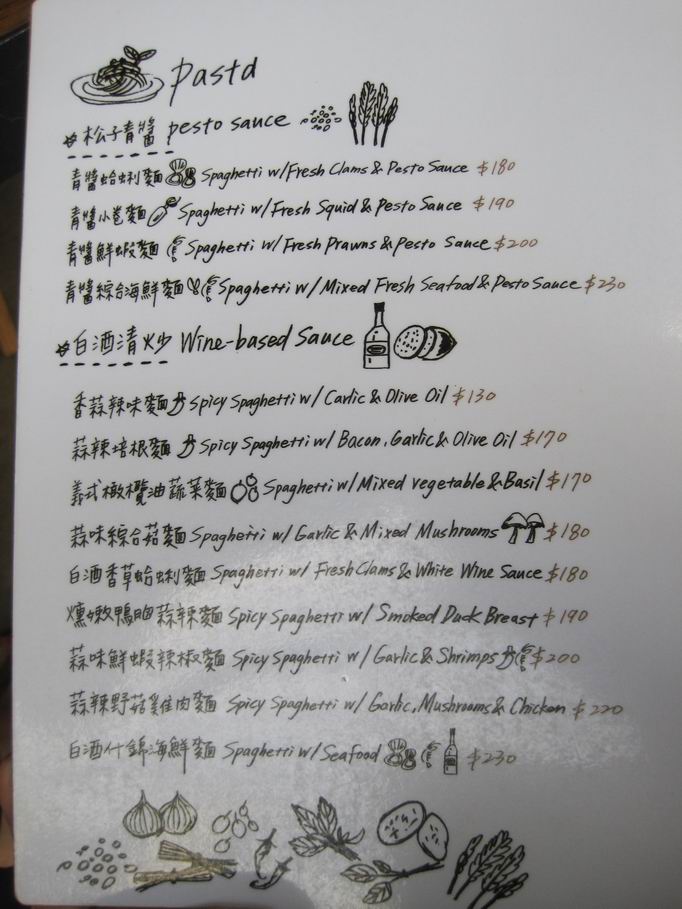 Pasta
松子青醬 pesto sauce
青醬蛤蜊麵 Spaghetti w/Fresh Clams & Pesto Sauce $180
青醬小卷麵 Spaghetti w/Fresh Squid & Pesto Sauce $190
青醬鮮蝦麵 Spaghetti w/Fresh Prawns & Pesto Sauce $200
青醬綜合海鮮麵 Spaghetti w/Mixed Fresh Seafood & Pesto Sauce $230
白酒清炒 Wine-based Sauce
香蒜辣味麵 Spicy Spaghetti w/ Garlic & Olive Oil $130
蒜辣培根麵 Spicy Spaghetti w/ Bacon, Garlic & Olive Oil $170
義式橄欖油蔬菜麵 Spaghetti w/Mixed vegetable & Basil $170
蒜味綜合菇麵 Spaghetti w/ Garlic & Mixed Mushrooms $180
白酒香草蛤蜊麵 Spaghetti w/ Fresh Clams & White Wine Sauce $180
燻嫩鴨胸蒜辣麵 Spicy Spaghetti w/ Smoked Duck Breast $190
蒜味鮮蝦辣椒麵 Spicy Spaghetti w/ Garlic & Shrimps $200
蒜辣野菇雞肉麵 Spicy Spaghetti w/ Garlic, Mushrooms & Chicken $220
白酒什錦海鮮麵 Spaghetti w/Seafood $230